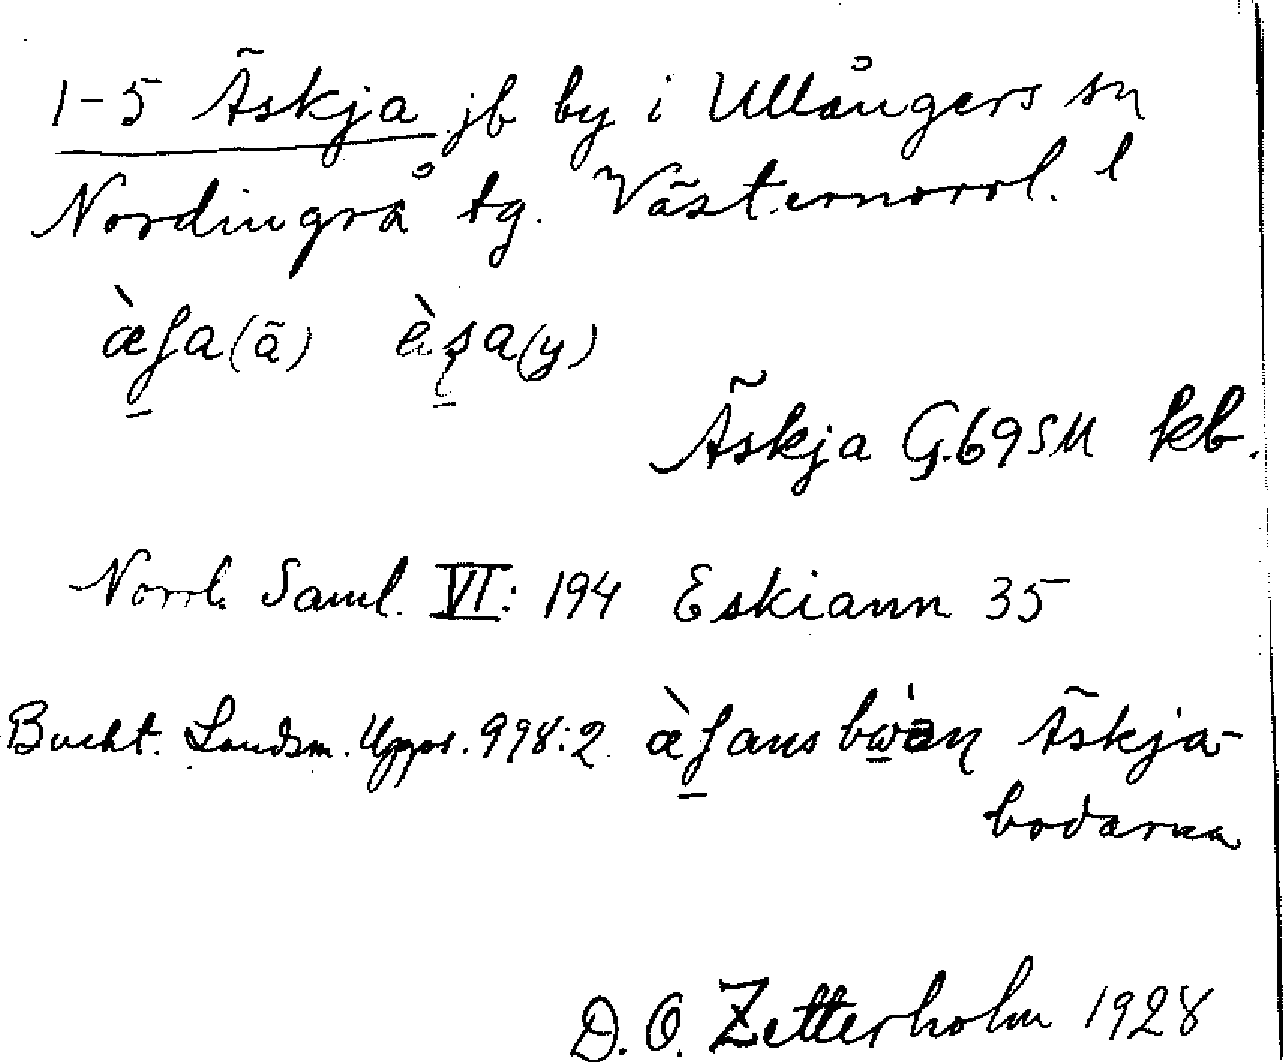 1-5 Äskja jb by i Ullångers sn
Nordingrå tg. Västernorrl. l
æ̀ʃa (ä) è̀ʂa (y)
Äskja G.69SM kb.
Norrl. Saml. VI: 194 Eskiann 35
Bucht. Landsm. Uppl. 998:2 æ̀ʃans Äskja-
bodarna
D. O. Zetterholm 1928